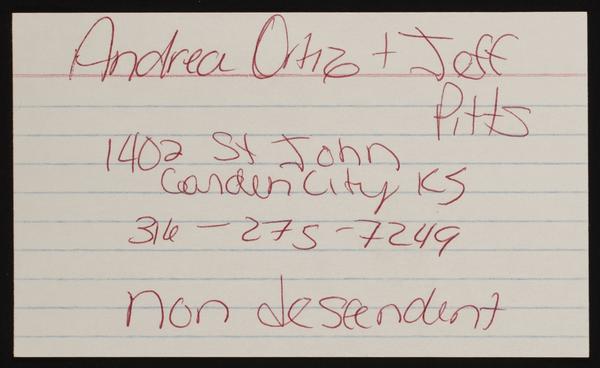 Andrea Ortiz + Jeff
Pitts
1402 St John
Garden City KS
316-275-7249
non descendent